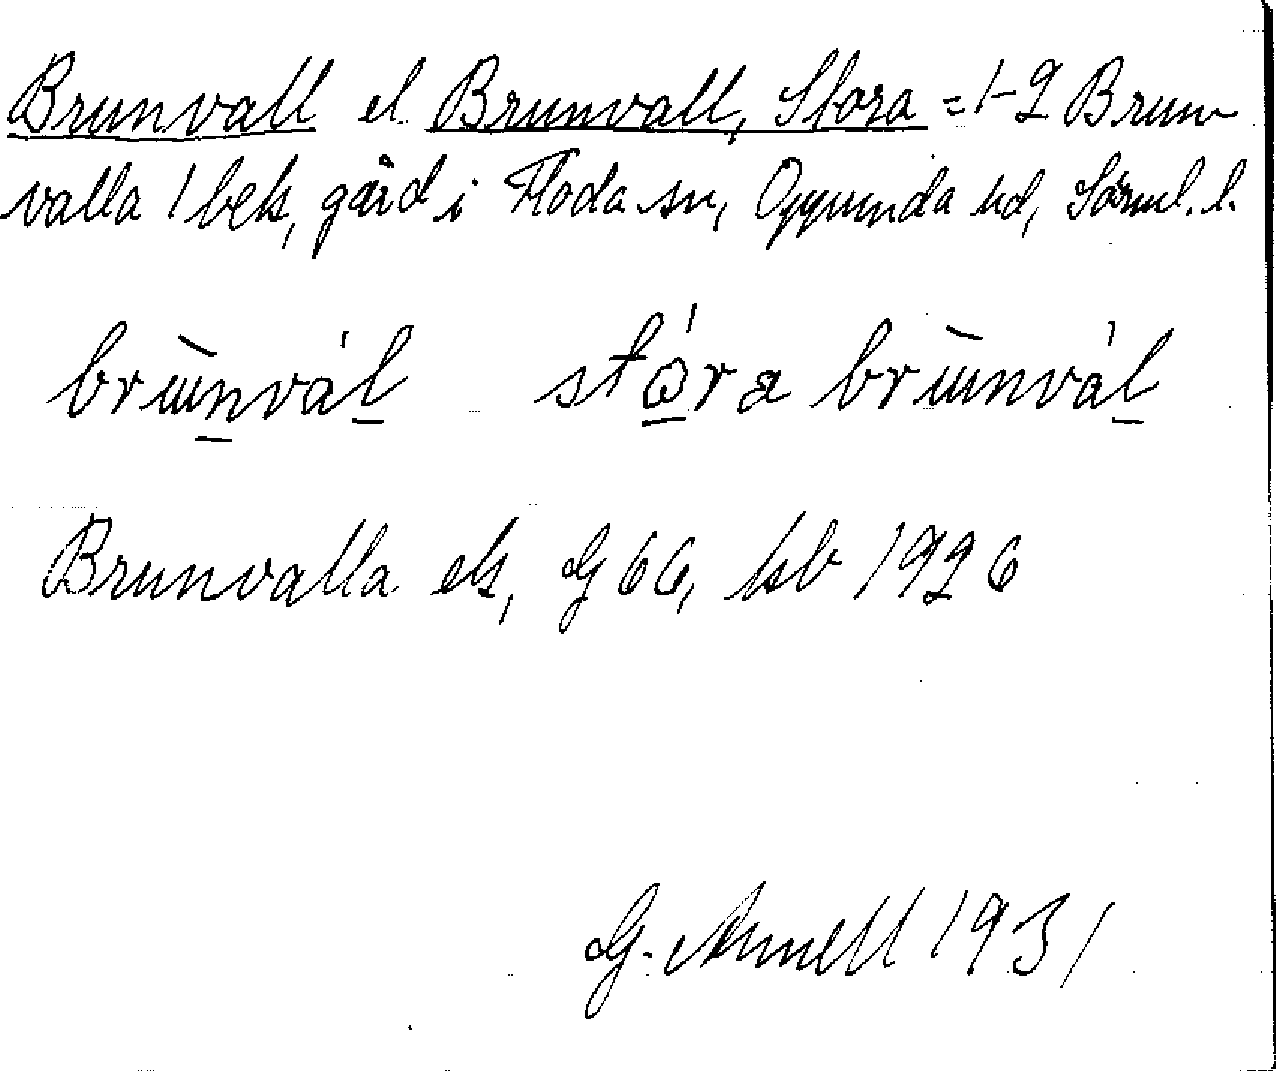 Brunvall el Brunvall, Stora = 1-2 Brun
valla 1 bek, gård i Floda sn, Oppunda hd, Sörml. l.
brùnvál stóra brùnvál
Brunvalla ek, G 66, kb 1926
G. 1931